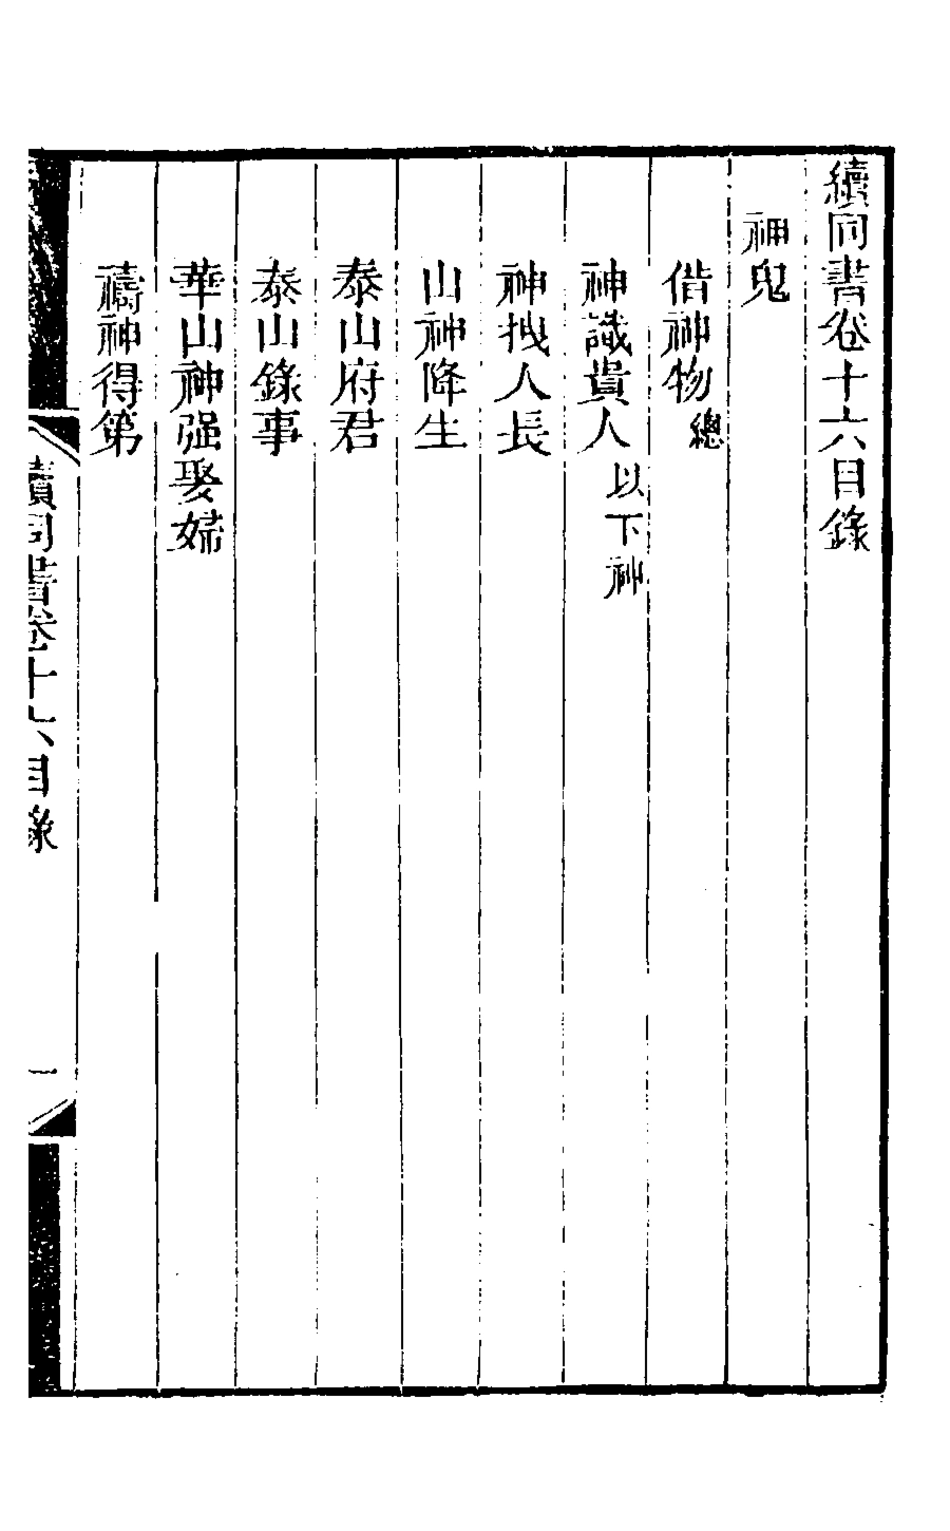 續同書卷十六目錄
神鬼
借神物總
神識貴人以下神
神拽人長
山神降生
泰山府君
泰山錄事
華山神强娶婦
禱神得第
續同書卷十六目錄
一